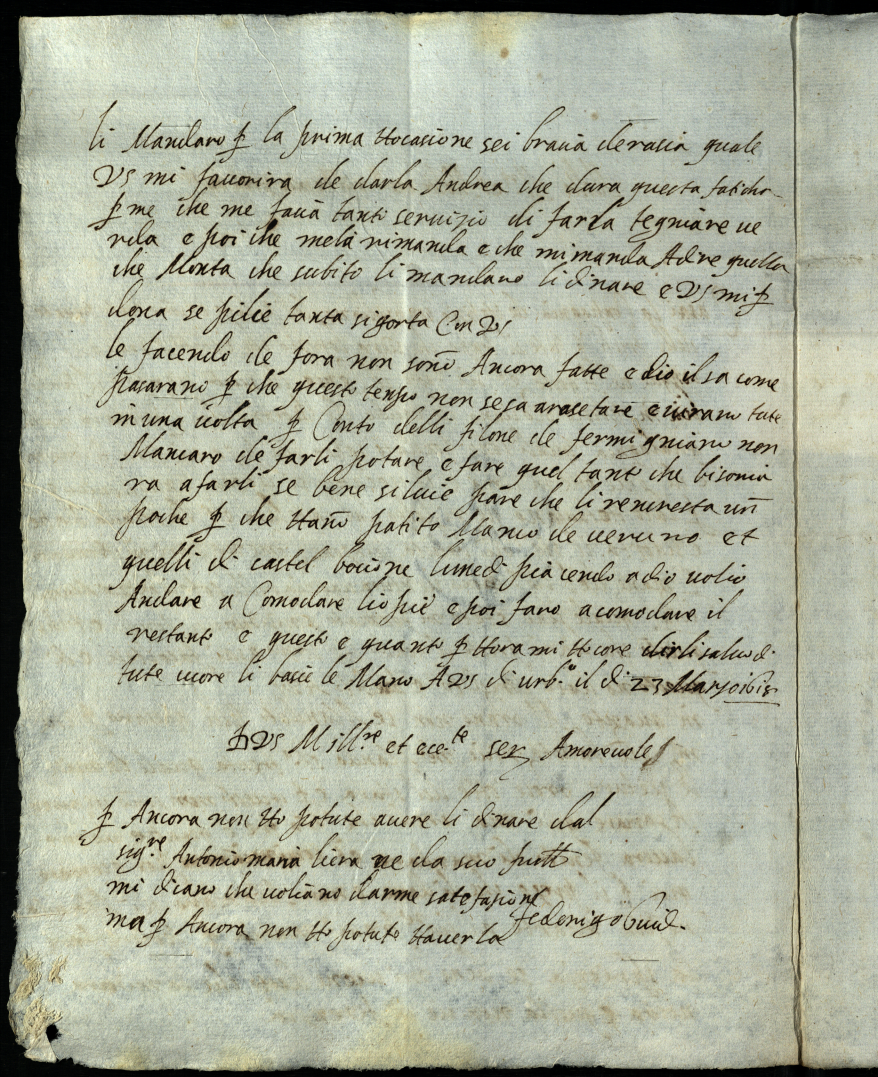 li Mandaro ꝑ la prima ttocasione sei bracia de rascia quale
VS mi favorira de darla Andrea che dura questa faticho
ꝑ me che me facia tanto servizio di farla tegniare ve
rda e poi che mela rimanda e che mi manda Adire quello
che Monta che subito li mandaro li dinare e VS mi ꝑ
dona se pilie tanta sigorta Con VS
le facendo de fora non sono Ancora fatte e dio il sa come
pasarano ꝑ che questo tenpo non se sa arasetare e virano tute
in una volta ꝑ Conto delli filone de fermigniano non
Mancaro de farli potare e fare quel tanto che bisonia
ra a farli se bene silvie pare che li rencresta un
poche ꝑ che ttano patito Manco de veruno et
quelli di castel bocione lunedi piacendo a dio volio
Andare a Comodare lio pie e poi faro acomodare il
restanto e questo e quanto ꝑ ttora mi ttocore dirli salvo di
tute cuore li bacie le Mano A VS di urb.º il di 23 Marzo
D VS M ill.re et ecc.te ser Amorevole
ꝑ Ancora non tto potute avere li dinare dal
sig.re Antonio maria liera ne da suo
mi dicano che voliano darme satesfasione
ma ꝑ Ancora non tto potuto ttaverla
federigo Guid.